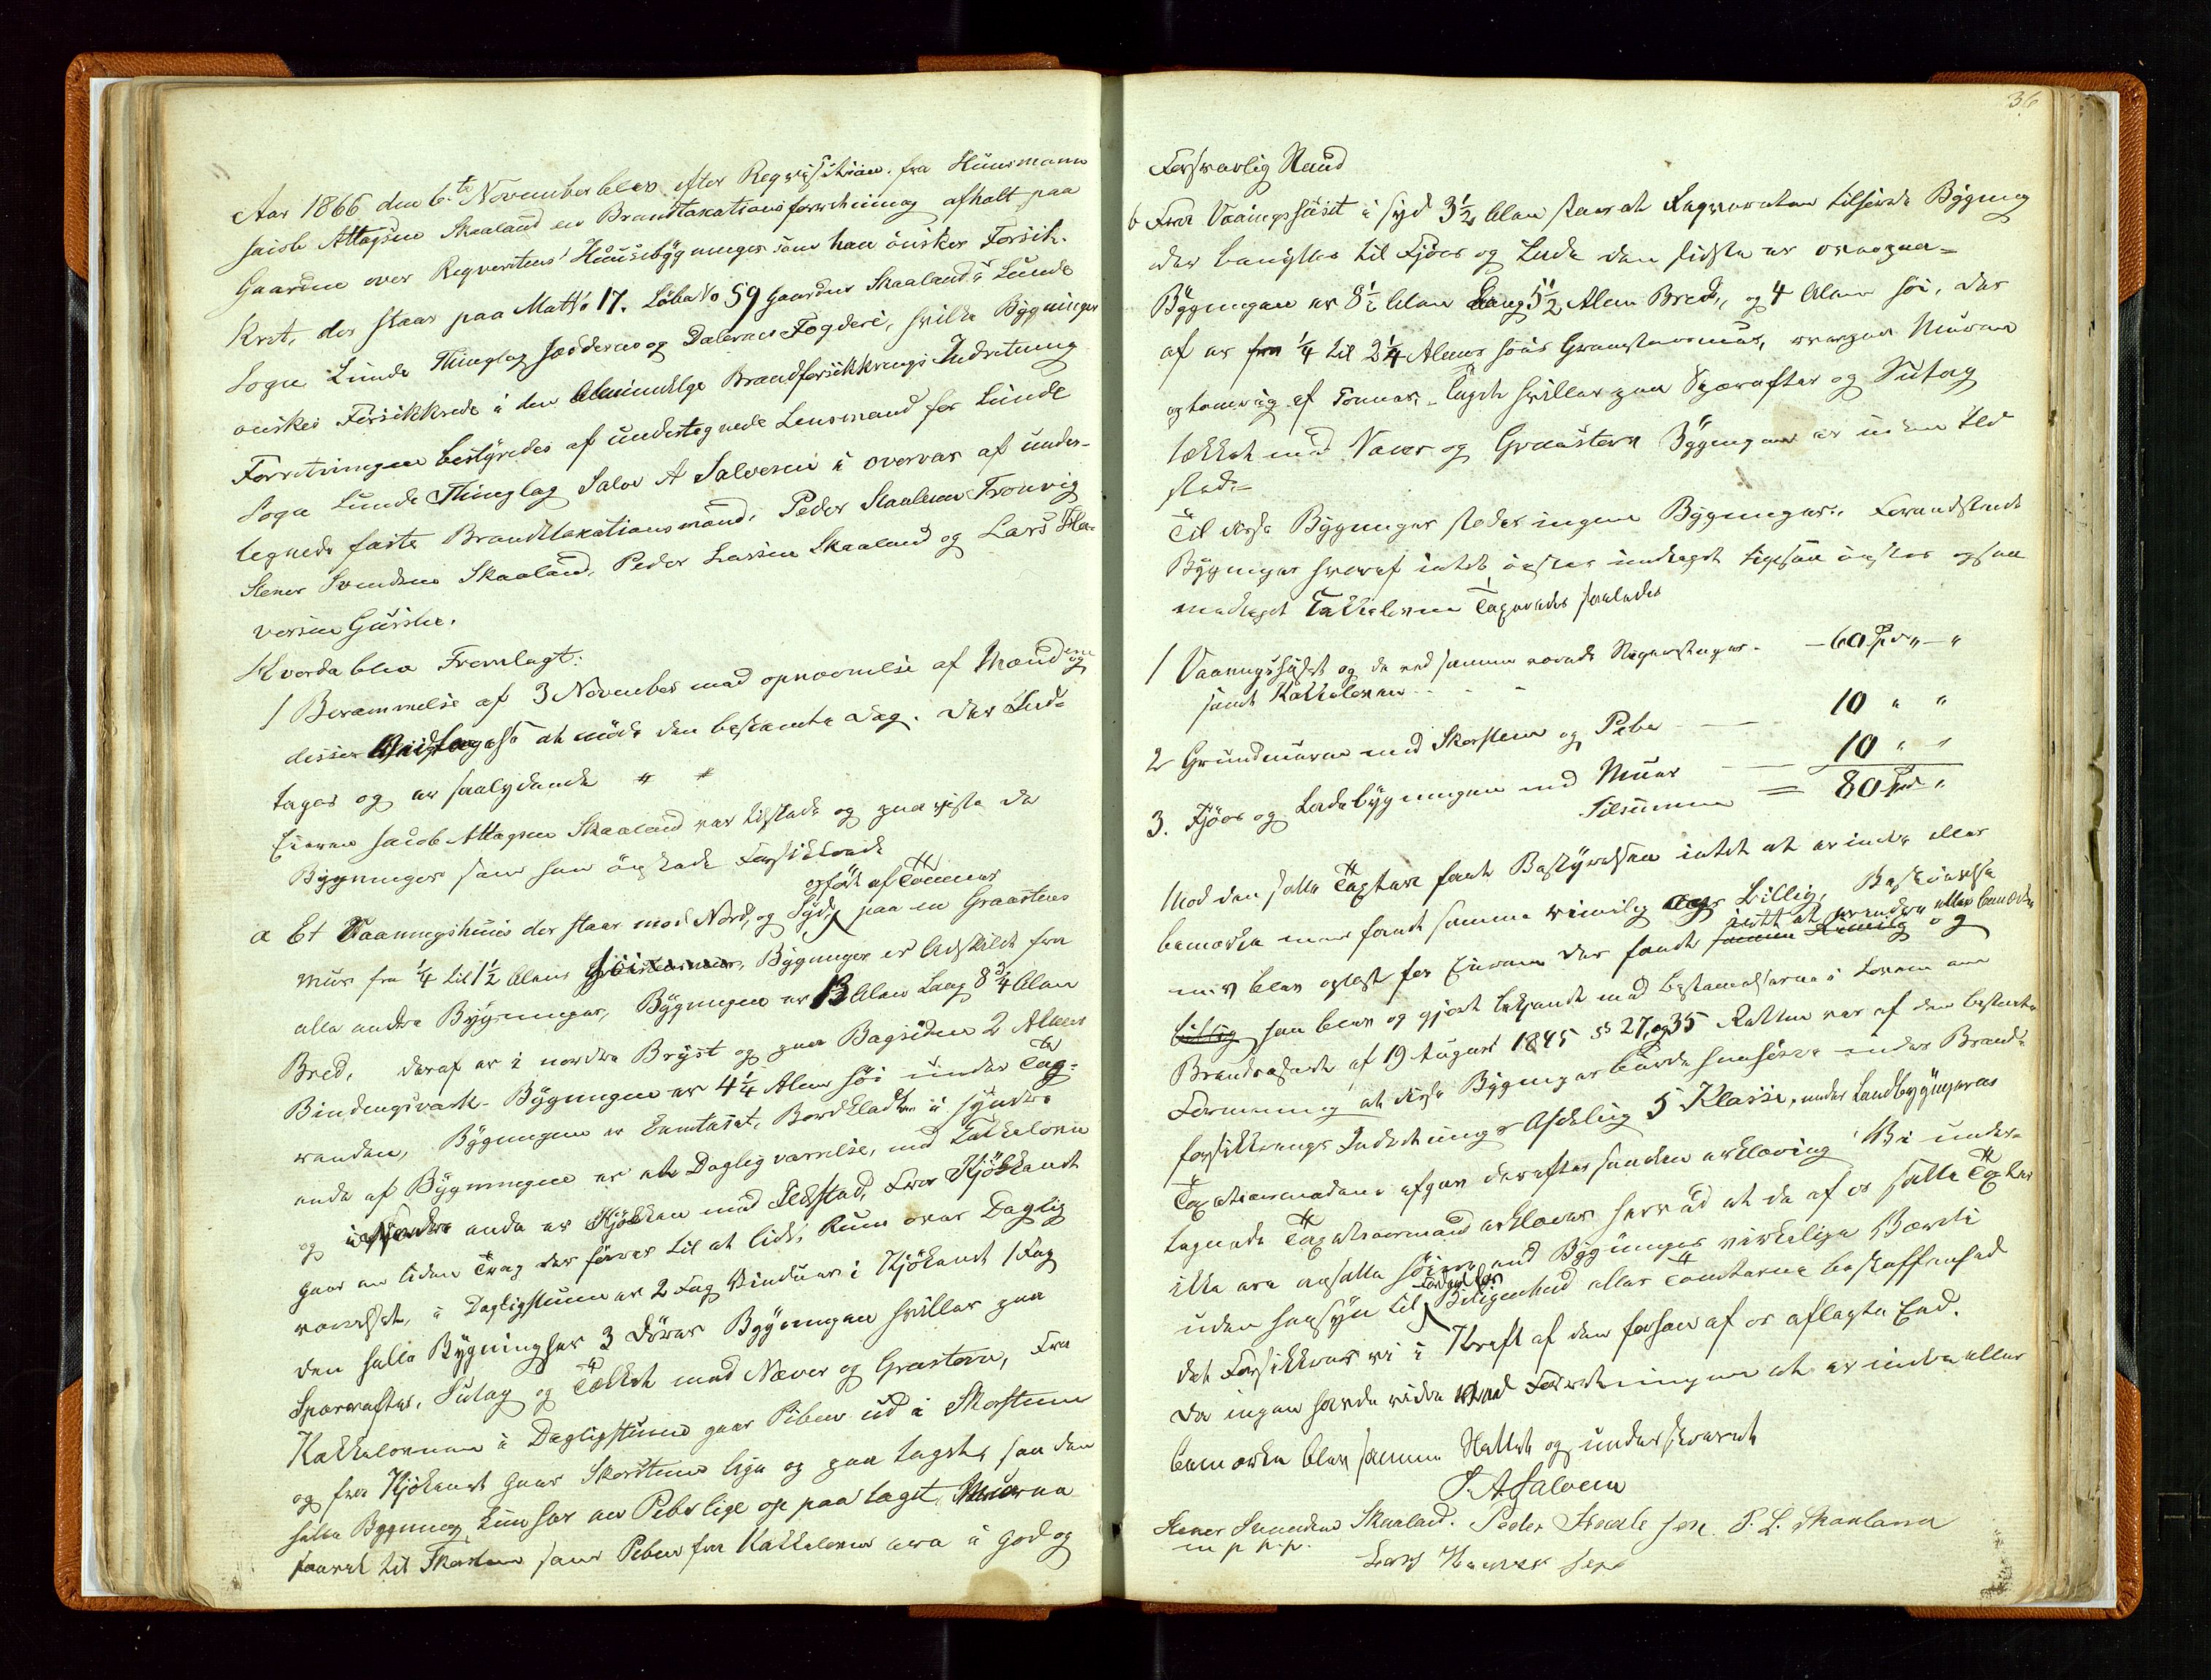 Aar 1866 den 6te November blev efter Requisition fra Huusmann
Jacob Attagsen Skaaland en Brandtaxationsforretning afholt paa
Gaardne over Reqverentens Huusebygninger som han önsker Forsik-
kret, der staar paa Mattr 17. Löbe No 59 Gaarden Skaaland i Lunde
Sogn Lunde Thinglag Jædderens og Dalernes Fogderi, hvilke Bygninger
önskes Forsikkrede i den Alminnelige Brandforsikkrings Indretning
Forretningen bestyredes af undertegnede Lensmand for Lunde
Sogn Lunde Thinglag Salve A Salvesen i overvær af under-
tegnede faste Brandtaxationsmænd, Peder Staalesen Tronvig
Stener Svendsen Skaaland, Peder Larsen Skaaland og Lars Ha-
versen Gursle.
Hvorda blev Fremlagt:
1 Berammelse af 3 November med opnævnelse af Mændene og
disses at möde den bestemte Dag. Der Ind-
tages og er saalydende " "
Eieren Jacob Attagsen Skaaland var tilstede og paaviste de
Bygninger som han önskede Forsikkrede
opfört af Tömmer
a Et Vaaningshuus der staar mod Nord og Syd, paa en Graastens
Muur fra 1/4 til 1 1/2 Alens Höi, Bygningen er Adskildt fra
alle andre Bygninger, Bygningen er 13 Alen Lang 8 3/4 Alen
Bred, deraf er i nordre Bryst og paa Bagsiden 2 Alens
Bindingsværk. Bygningen er 4 1/4 Alen höi under Tag-
randen, Bygningen er Bordkladt i syndre
ende af Bygningen er et Dagligværelse, med Kakkelovn
og i Nordre ende er Kjökken med Ildsted, fra Kjökkenet
gaar en liden Trap der förer til et lidet Rum over Daglig
værelset, i Dagligstuen er 2 Fag Vinduer i Kjökenet 1 Fag
den halle Bygning har 3 Dörer Bygningen hviller paa
Sparrafter, Sutag og Tækket med Næver og Grasteen, Fra
Kakkelovnen i Dagligstuen gaar Piben ud i Skorstenen
og fra Kjökenet gaar Skorstenen lige op paa taget, saa den
halle Bygning kun har en Pibe lige op paa taget. Muurene
saavel til Skorsten som Piben fra Kakkelovnen ere i god og
36
Forsvarlig Stand
b Fra Vaaningshuset i Syd 3 1/2 Alen staar et Reqverenten tilhörende Bygning
der benyttes til Fjöes og Lade den sidste er ovenpaa-
Bygningen er 8 1/2 Alen Lang 5 1/2 Alen Bred, og 4 Alen höi, der
af er fra 1/4 til 2 1/4 Alens höi Graastensmur, ovenpaa Muren
optömring af Tömmer, Taget hviller paa Sparrafter og Sutag
tækket med Næver og Graasteen Bygningen er uden Ild
sted-
Til disse Bygninger stöder ingen Bygninger. Foranstaaende
Bygninger hveraf intet önskes undtaget ligesaa önskes ogsaa
medtaget Kakkelovnen Taxeredes saaledes
1 Vaaningshuset og de ved samme værende
samt Kakkelovnen - 60 Spd " - "
2 Grundmuren med Skorsten og Pibe — 10 " "
3. Fjöes og Ladebygningen med Muur — 10 " "
Tilsammen = 80 Spd "
Mod den satte Taxten fant Bestyrelsen intet at erindre eller
bemærke men fandt samme rimelig og Billig, Beskrivelsen
intet at erindre eller bemærke
blev oplæst for Eieren der fandt samme Rimelig og
billig han blev og gjort bekjendt med bestemmelserne i Loven om
Brandvæsnet af 19 August 1845 §§ 27, og 35 Retten var af den bestemte
Formening at disse Bygninger burde henföres under Brand-
forsikkrings Indretnings Afdeling 5 Klasse, under Landbygningerne
Taxationsmændene afgav derefter saadan erklæring: Vi under-
tegnede Taxationsmænd erklærer herved at de af os satte Taxter
ikke ere ansatte höiere end Bygningers virkelige Værdi
Fordel for
uden hensyn til Beligenhed eller Tomternes beskaffenhed
det Forsikkrer vi i Kraft af den forhen af os aflagte Eed.
Da ingen havde videre ved Forretningen at erindre eller
bemærke blev samme Sluttet og underskrevet
S. A. Salvesen
Stener Svendsen Skaaland. Peder Staalesen P. L. Skaaland
m p h.p.
Lars Haversen